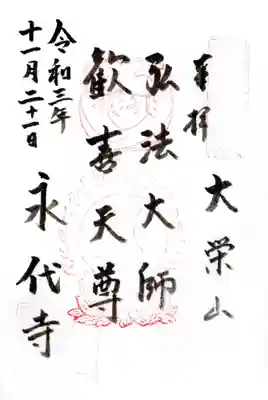 奉拝
大栄山
弘法大師
歓喜天尊
令和三年
十一月二十一日
永代寺